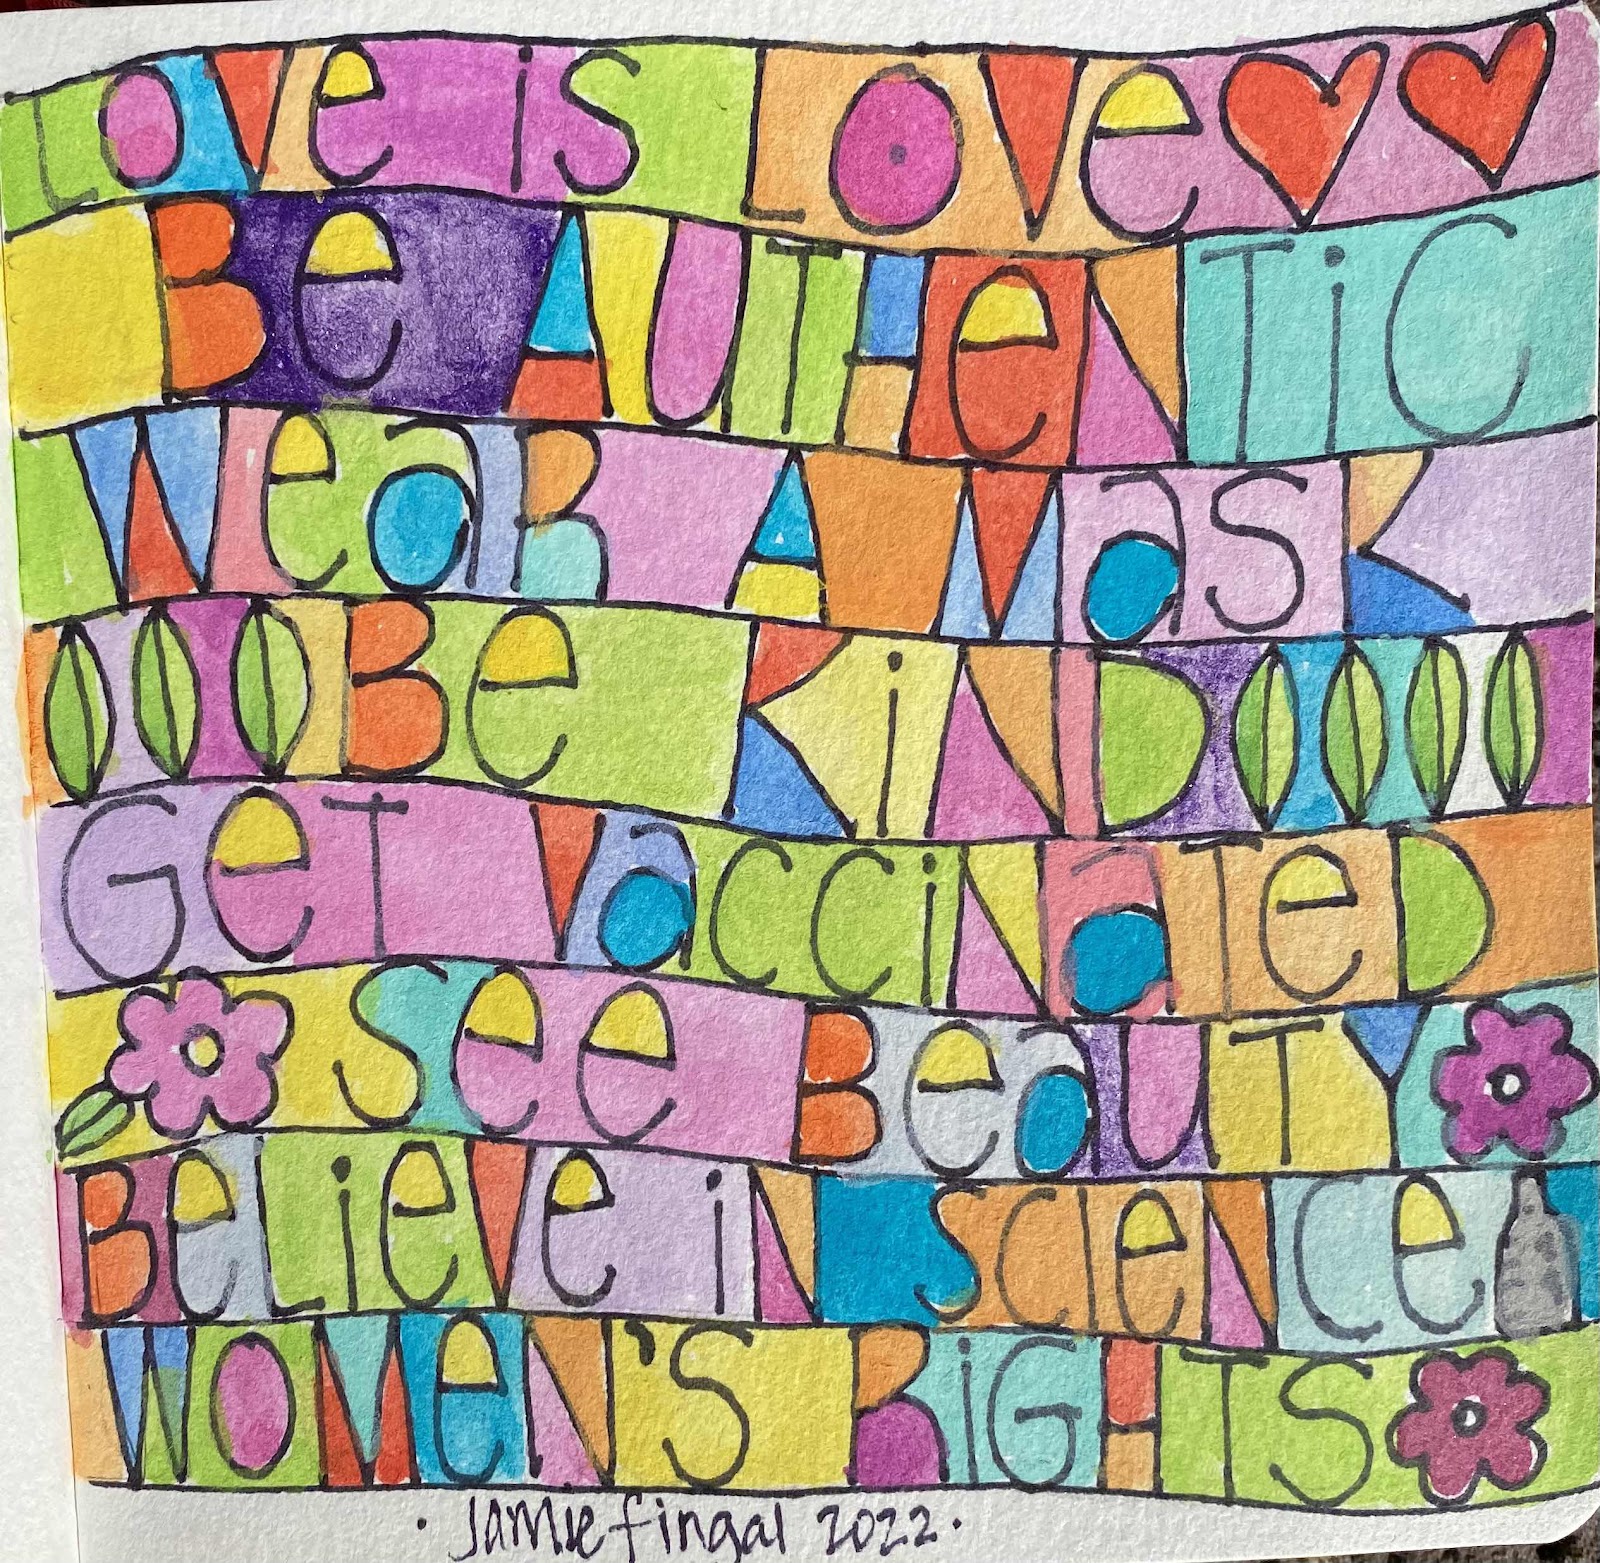 Love is Love
Be AUTHeNTiC
Wear A Mask
Be KiND
GeT VacciNaTeD
See BeaUTY
BeLieVe iN ScieNce
WOMeN'S RiGHTS
· Jamie fingal 2022 ·